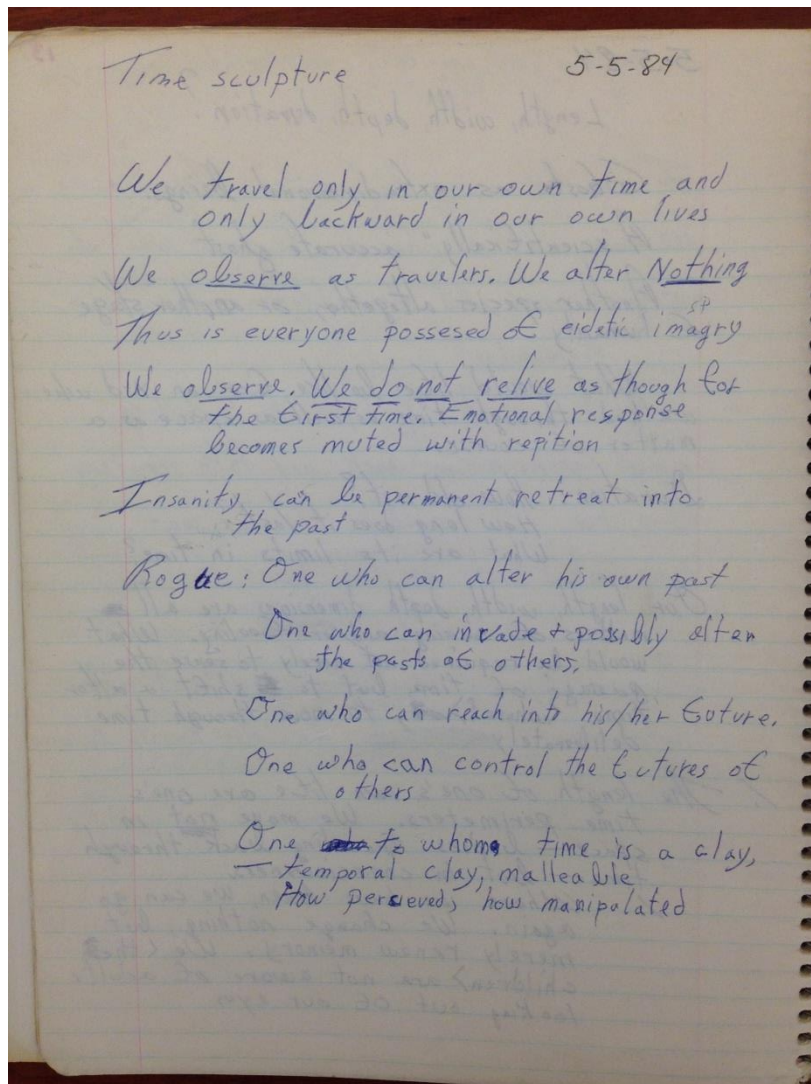 Time sculpture 5-5-84
We travel only in our own time, and
only backward in our own lives
We observe as travelers. We alter Nothing
sp
Thus is everyone possesed of eidetic imagry
We observe. We do not relive as though for
the first time. Emotional response
becomes muted with repition
Insanity can be permanent retreat into
the past
Rogue: One who can alter his own past
One who can invade + possibly alter
the pasts of others.
One who can reach into his/her future.
One who can control the futures of
others
One to whom time is a clay,
– temporal clay, malleable
How perseved, how manipulated